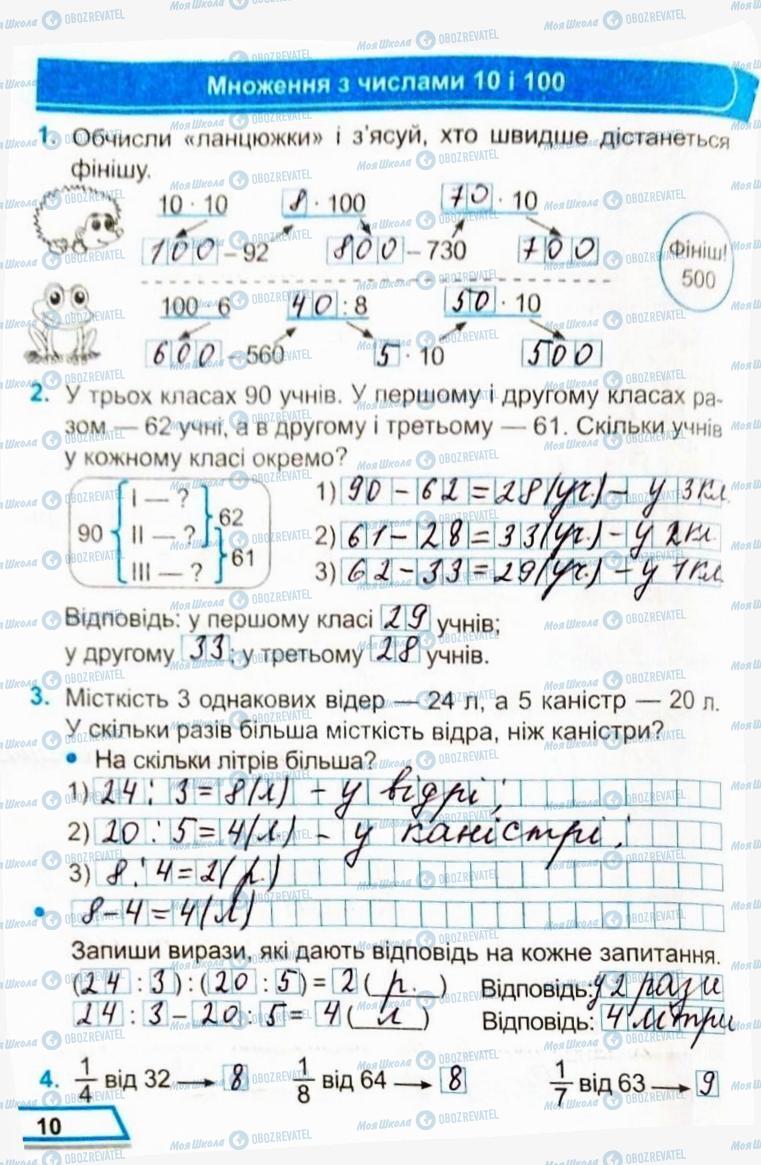 Множення з числами 10 і 100
1. Обчисли «ланцюжки» і з'ясуй, хто швидше дістанеться
фінішу.
10 · 10 8 · 100 70 · 10
100 – 92 800 – 730 700
Фініш!
500
100 · 6 40 : 8 50 · 10
600 – 560 5 · 10 500
2. У трьох класах 90 учнів. У першому і другому класах ра-
зом — 62 учні, а в другому і третьому — 61. Скільки учнів
у кожному класі окремо?
90
I — ?
II — ?
III — ?
62
61
1) 90 – 62 = 28 (уч.) – у 3 кл.
2) 61 – 28 = 33 (уч.) – у 2 кл.
3) 62 – 33 = 29 (уч.) – у 1 кл.
Відповідь: у першому класі 29 учнів;
у другому 33; у третьому 28 учнів.
3. Місткість 3 однакових відер — 24 л, а 5 каністр — 20 л.
У скільки разів більша місткість відра, ніж каністри?
• На скільки літрів більша?
1) 24 : 3 = 8 (л) – у відрі;
2) 20 : 5 = 4 (л.) – у каністрі;
3) 8 : 4 = 2 (р.)
• 8 – 4 = 4 (л)
Запиши вирази, які дають відповідь на кожне запитання.
(24 : 3) : (20 : 5) = 2 (р.) Відповідь: у 2 рази
24 : 3 – 20 : 5 = 4 (л) Відповідь: 4 літри
4. 1/4 від 32 → 8 1/8 від 64 → 8 1/7 від 63 → 9
10
МояШкола OBOZREVATEL